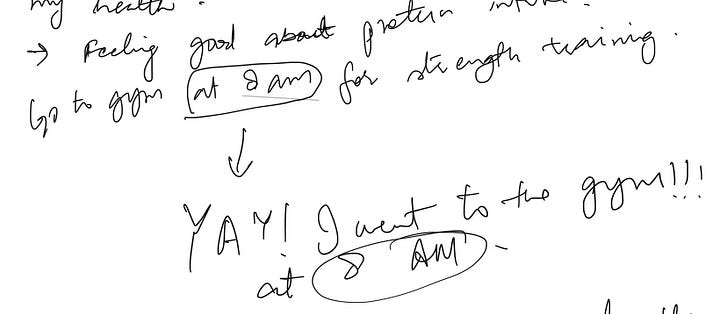 my health.
→ Feeling good about protein intake.
Go to gym at 8 am for strength training.
YAY! I went to the gym!!!
at 8 AM